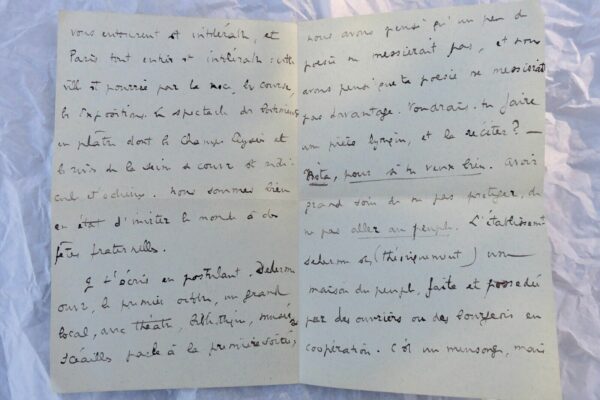 vous entourent est intolérable, et
Paris tout entier est intolérable : cette
ville est pourrie par le
les Expositions. Le spectacle des
en plâtre dont les Champs Elysées et
les rives de la Seine se couvre est ridi-
cule et odieux. Nous sommes bien
en état d'inviter le monde à des
fêtes fraternelles.
Je t'écris en postulant. Deherme
ouvre, le premier octobre, un grand
local, avec théâtre, bibliothèque, musée
Séailles parle à la première soirée,
nous avons pensé qu'un peu de
poésie ne messiérait pas, et nous
avons pensé que ta poésie ne messiérait
pas davantage. Voudrais-tu faire
une pièce lyrique, et la réciter ? —
Nota, pour si tu veux bien. Avoir
grand soin de ne pas protéger, de
ne pas aller au peuple. L'établissement
Deherme est (théoriquement) une
maison du peuple, faite et possédée
par des ouvriers ou des bourgeois en
coopération. C'est un mensonge, mais